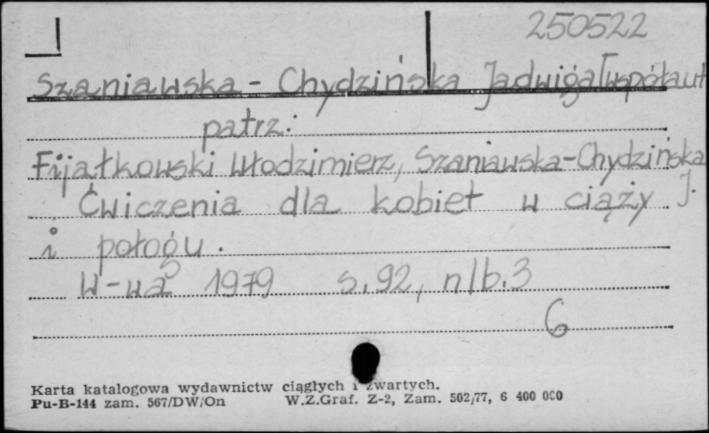 250522
Szaniawska - Chydzińska Jadwiga [współaut
patrz:
Fijałkowski Włodzimierz, Szaniawska-Chydzińska J.
Ćwiczenia dla kobiet w ciąży
i połogu.
W-wa 1979 s. 92, nlb. 3
6
Karta katalogowa wydawnictw ciągłych i zwartych.
Pu-B-144 zam. 567/DW/On W.Z.Graf. Z-2, Zam. 502/77, 6 400 000